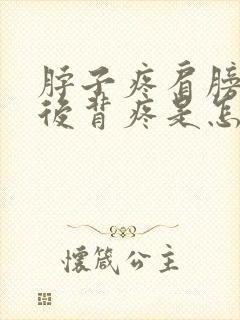 脖子疼肩膀
后背疼是怎
懷箴公主